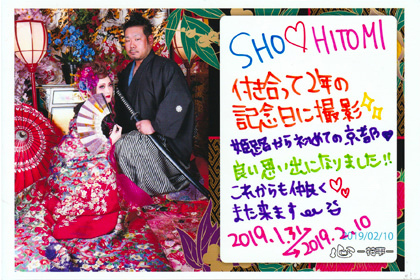 SHO♡HITOMI
付き合って2年の
記念日に撮影✨
姫路から初めての京都♥
良い思い出になりました!!
これからも仲良く♡♡
また来ます
2019.1.31
↳2019.2.10
2019/02/10